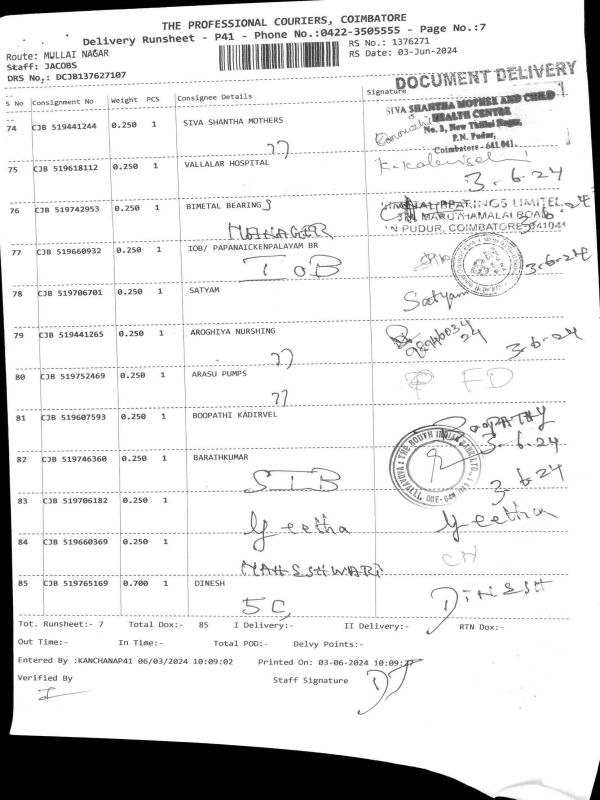 THE PROFESSIONAL COURIERS, COIMBATORE
Delivery Runsheet - P41 - Phone No.:0422-3505555 - Page No.:7
Route: MULLAI NAGAR RS No.: 1376271
Staff: JACOBS RS Date: 03-Jun-2024
DRS No,: DCJB137627107
DOCUMENT DELIVERY
S No Consignment No Weight PCS Consignee Details Signature
74 CJB 519441244 0.250 1 SIVA SHANTHA MOTHERS
SIVA SHANTHA MOTHER AND CHILD
HEALTH CENTRE
No. 3, New Thillai Nagar,
P.N. Pudur,
Coimbatore - 641 041.
75 CJB 519618112 0.250 1 VALLALAR HOSPITAL
3-6-24
76 CJB 519742953 0.250 1 BIMETAL BEARINGS
BEARINGS LIMITED
MARUTHAMALAI ROAD
N PUDUR, COIMBATORE-641041
3-6-24
MANAGER
77 CJB 519660932 0.250 1 IOB/ PAPANAICKENPALAYAM BR
IOB 3-6-24
78 CJB 519706701 0.250 1 SATYAM
Satyam
79 CJB 519441265 0.250 1 AROGHIYA NURSHING
3-6-24
80 CJB 519752469 0.250 1 ARASU PUMPS
FD
81 CJB 519607593 0.250 1 BOOPATHI KADIRVEL
BOOPATHY
3-6-24
82 CJB 519746360 0.250 1 BARATHKUMAR
THE SOUTH INDIAN BANK LTD.
SIB 3-6-24
83 CJB 519706182 0.250 1
Geetha Geetha
84 CJB 519660369 0.250 1
MAHESHWARI
85 CJB 519765169 0.700 1 DINESH
5C DINESH
Tot. Runsheet:- 7 Total Dox:- 85 I Delivery:- II Delivery:- RTN Dox:-
Out Time:- In Time:- Total POD:- Delvy Points:-
Entered By :KANCHANAP41 06/03/2024 10:09:02 Printed On: 03-06-2024 10:09:
Verified By Staff Signature